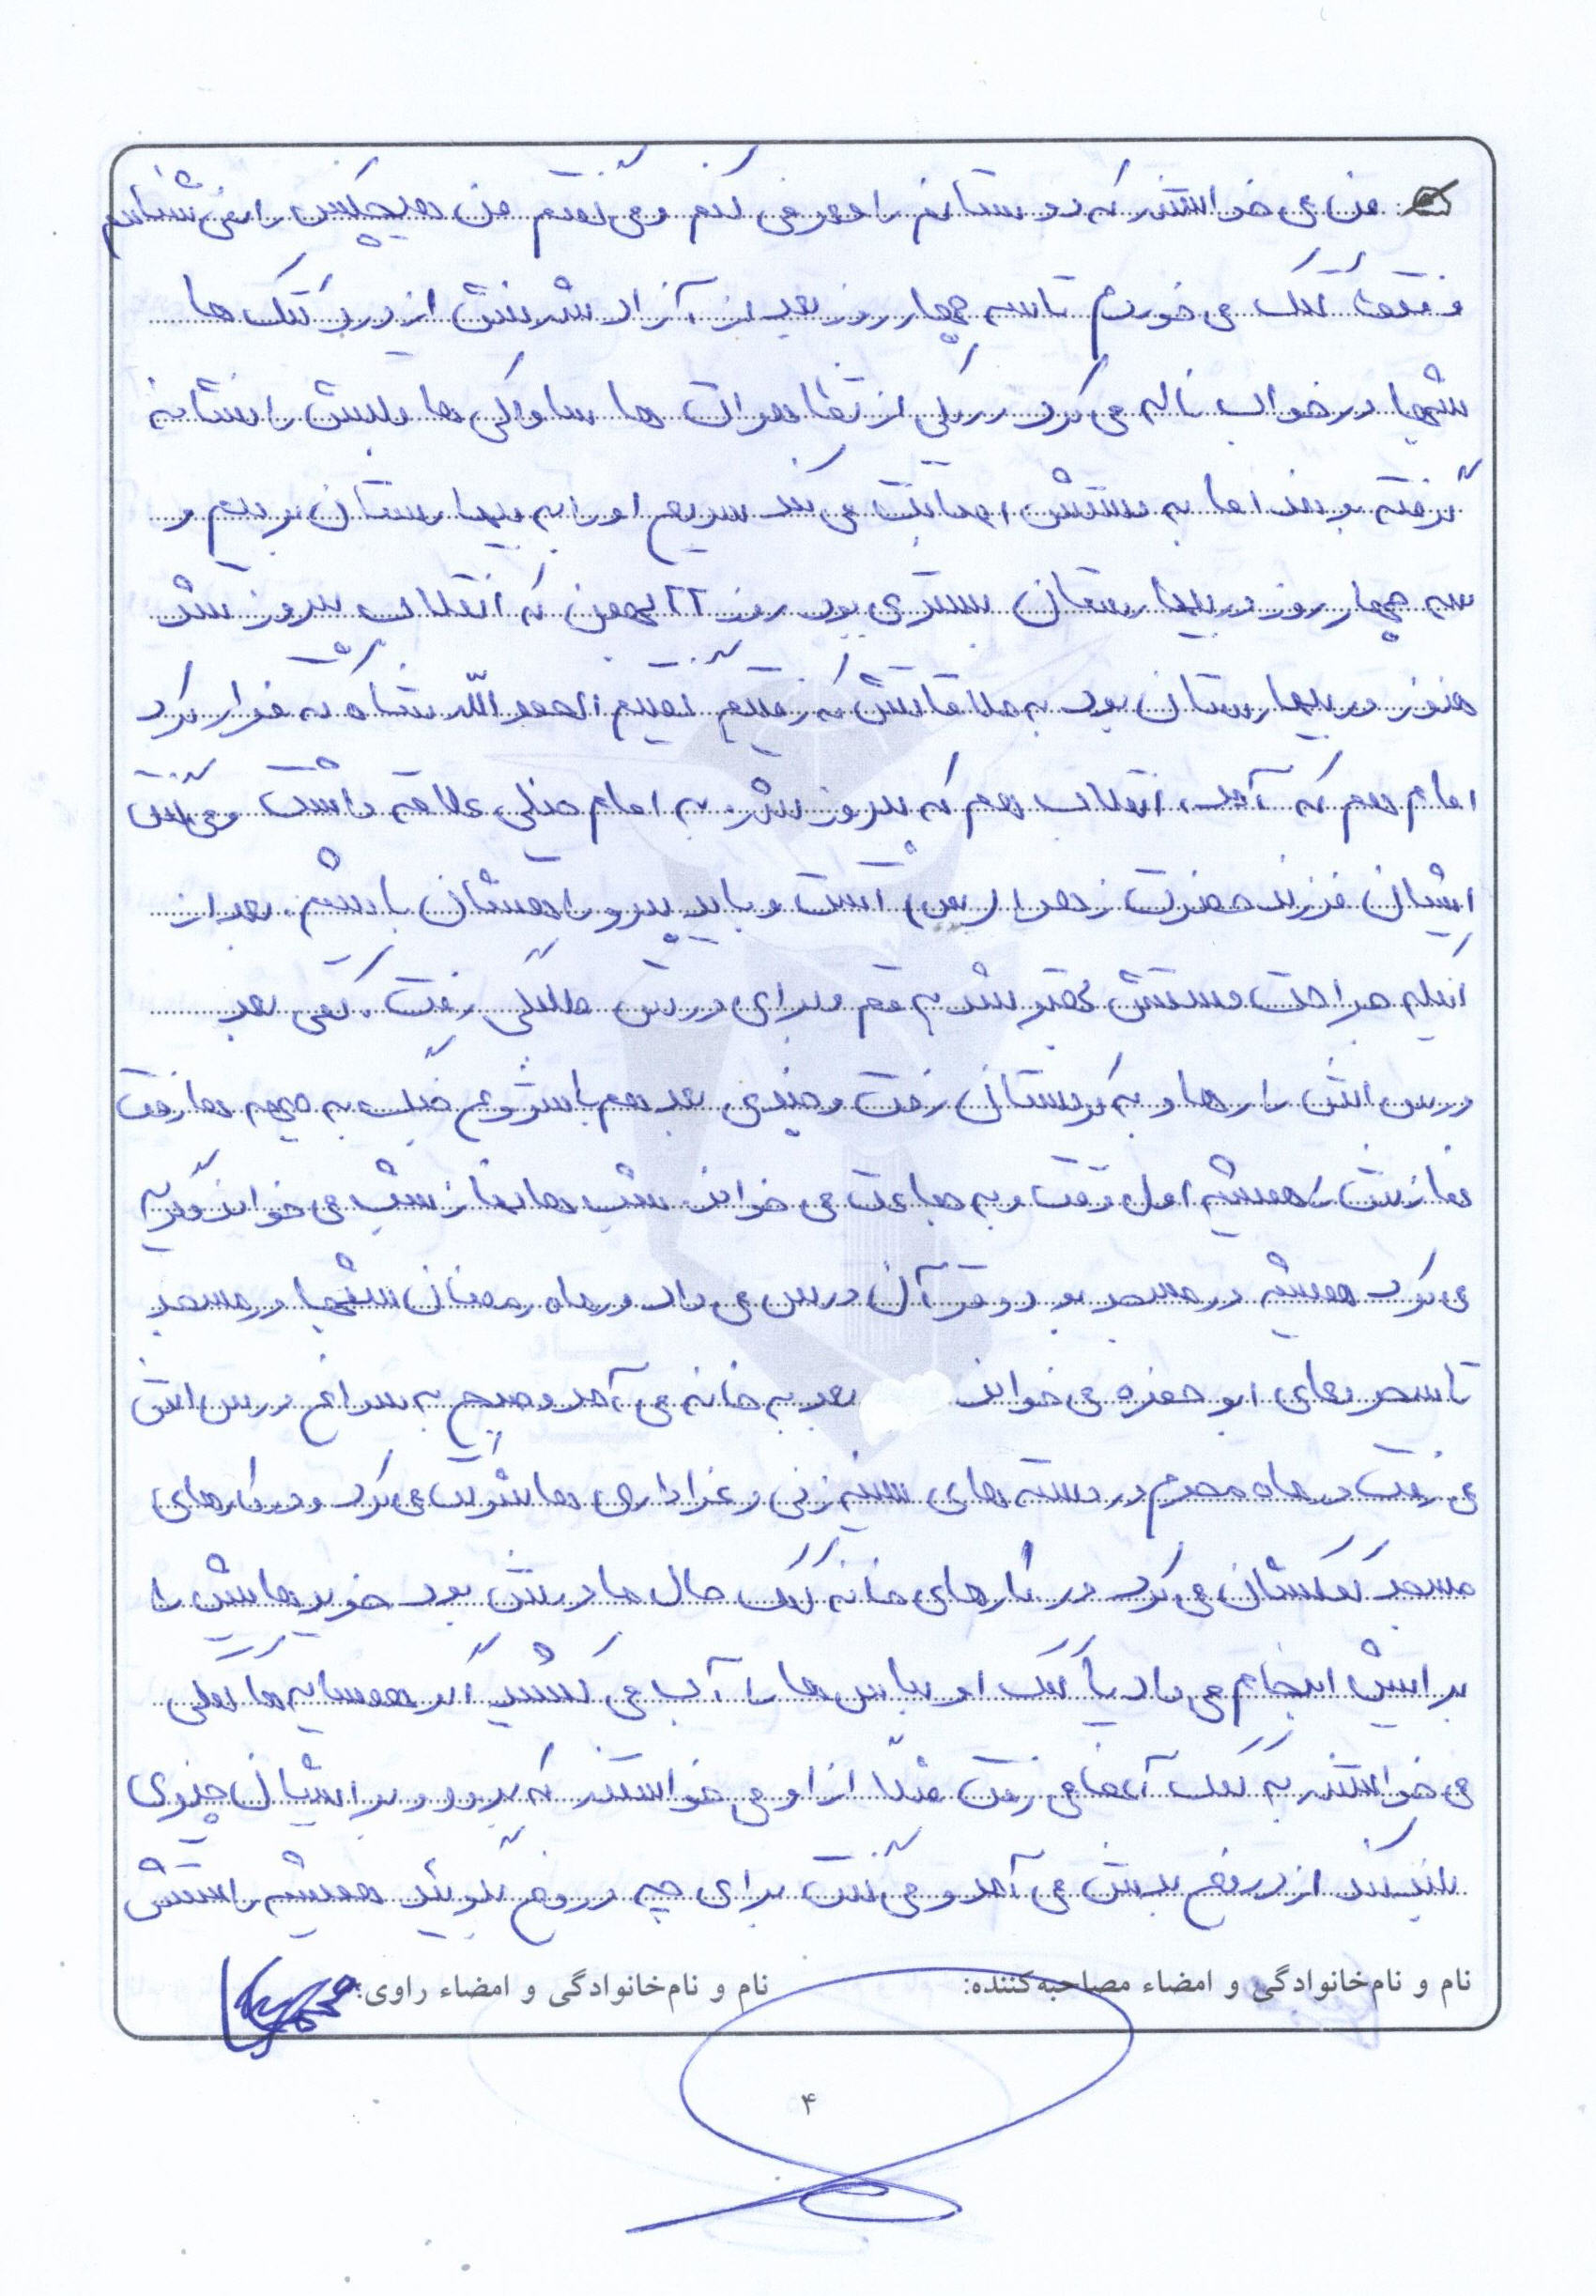 من می خواستند که دوستانم را معرفی کنم و می گفتم من هیچکس را نمی شناسم
و فقط کتک می خوردم تا سه چهار روز بعد از آزاد شدنش از درد کتک ها
شبها در خواب ناله می کرد در یکی از تظاهرات ها ساواکی ها قلبش را نشانه
گرفته بودند اما به دستش اصابت می کند سریع او را به بیمارستان بردیم و
سه چهار روز در بیمارستان بستری بود روز ۲۲ بهمن که انقلاب پیروز شد
هنوز در بیمارستان بود به ملاقاتش که رفتیم گفتیم الحمدالله شاه که فرار کرد
امام هم که آمد، انقلاب هم که پیروز شد به امام خیلی علاقه داشت و می گفت
ایشان فرزند حضرت زهرا (س) است و باید پیرو راهشان باشیم. بعد از
اینکه جراحت دستش بهتر شد به قم و برای درس طلبگی رفت. کمی بعد
درس اش را رها و به کردستان رفت و چندی بعد هم با شروع جنگ به جبهه ها رفت
نمازش را همیشه اول وقت و به جماعت می خواند. شب ها نماز شب می خواند و گریه
می کرد همیشه در مسجد بود و قرآن درس می داد در ماه رمضان شبها در مسجد
تا سحر دعای ابوحمزه می خواند بعد به خانه می آمد و صبح به سراغ درس اش
می رفت در ماه محرم در دسته های سینه زنی و عزاداری ها شرکت می کرد و در کارهای
مسجد کمکشان می کرد در کارهای خانه کمک حال مادرش بود خریدهایش را
برایش انجام می داد یا کمک او لباس ها را آب می کشید اگر همسایه ها کمکی
می خواستند به کمک آنها می رفت مثلا از او می خواستند که برود و برایشان چیزی
بلند کند از دروغ بدش می آمد و می گفت برای چه دروغ بگویند همیشه راستش
نام و نام‌خانوادگی و امضاء مصاحبه‌کننده: نام و نام‌خانوادگی و امضاء راوی:
۴